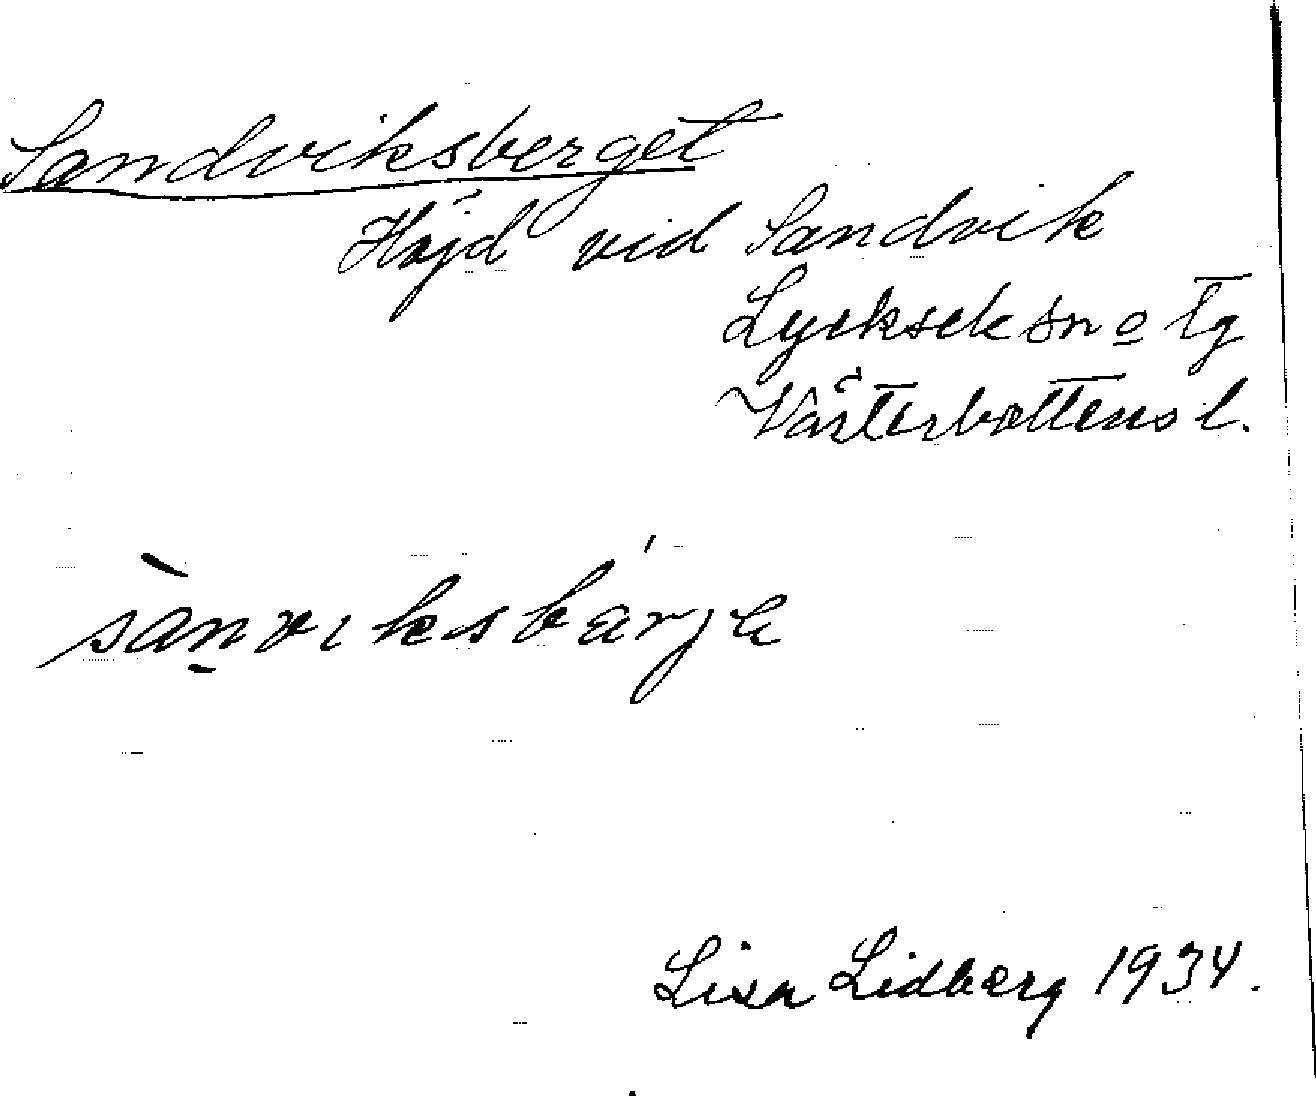 Sandviksberget
Höjd vid Sandvik
Lycksele sn o tg
Västerbottens l.
sànviksbárje
Lisa Lidberg 1934.